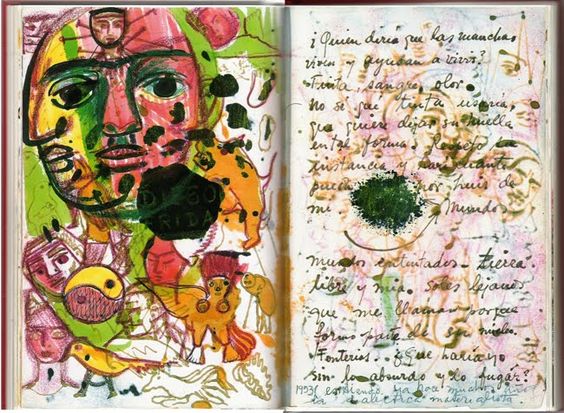 DI GO
RIDA
¿Quien diría que las manchas
viven y ayudan a vivir?
Tinta, sangre, olor.
no se que tinta usaría,
que quiere dejar su huella
en tal forma. Respeto su
instancia y haré cuanto
pueda por huir de
mi Mundo
mundos entintados - tierra
libre y mia. soles lejanos
que me llaman porque
formo parte de su núcleo.
Tonterias.. ¿Que haria yo
sin lo absurdo y lo fugaz?
1953 entiendo ya hace muchos años
la dialectica materialista